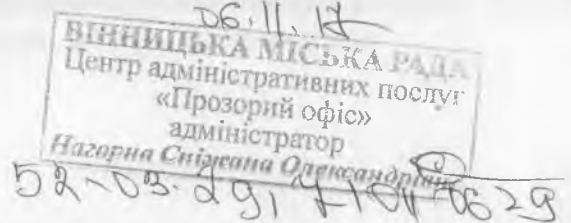 06.11.17
ВІННИЦЬКА МІСЬКА РАДА
Центр адміністративних послуг
«Прозорий офіс»
адміністратор
Нагорна Сніжана Олександрівна